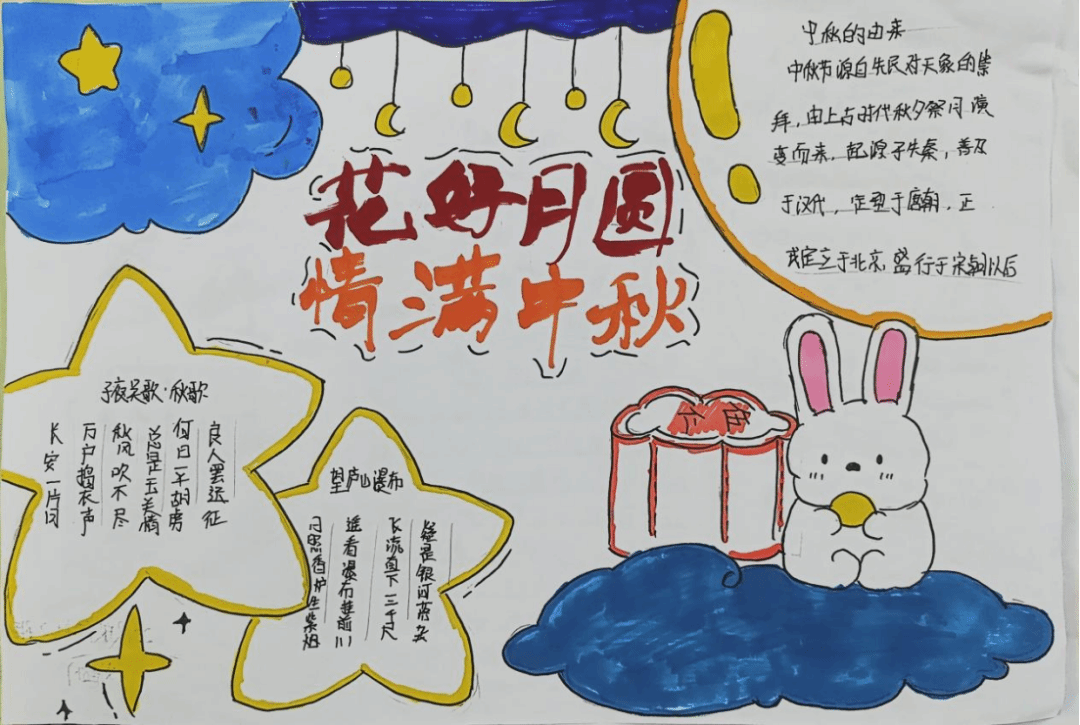 花好月圆
情满中秋
中秋的由来
中秋节源自先民对天象的崇
拜，由上古时代秋夕祭月演
变而来，起源于先秦，普及
于汉代，定型于唐朝，正
式定立于北京，盛行于宋朝以后
子夜吴歌·秋歌
长安一片月
万户捣衣声
秋风吹不尽
总是玉关情
何日平胡虏
良人罢远征
望庐山瀑布
日照香炉生紫烟
遥看瀑布挂前川
飞流直下三千尺
疑是银河落九天